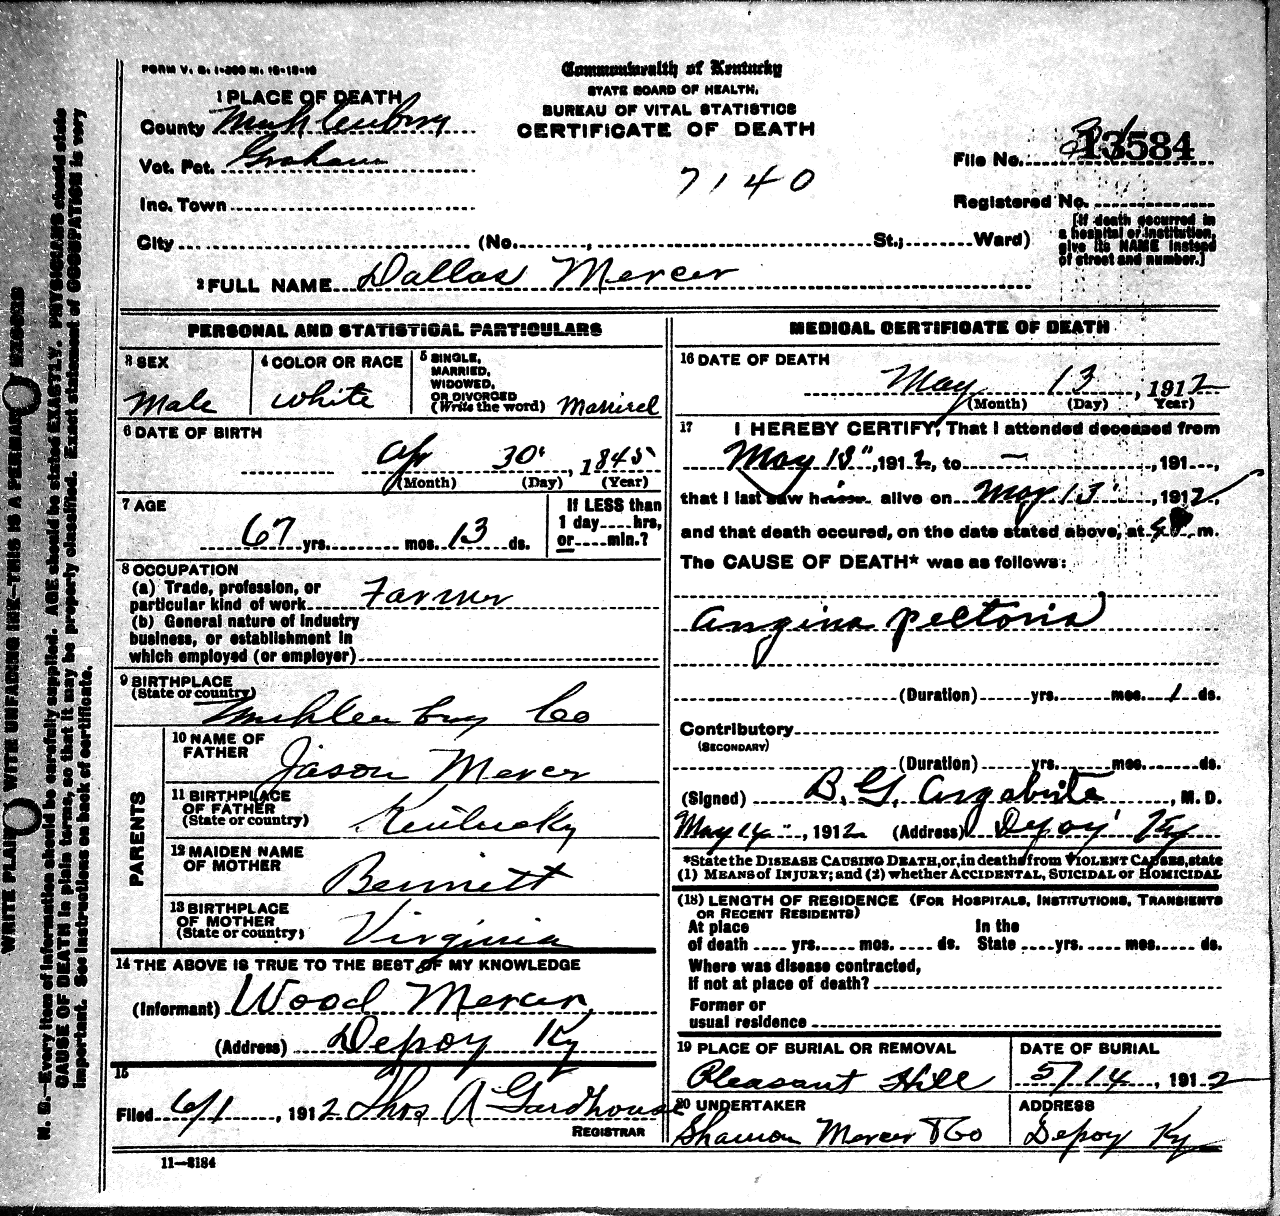 FORM V. S. 1-300 M. 10-18-10
Commonwealth of Kentucky
STATE BOARD OF HEALTH,
BUREAU OF VITAL STATISTICS
CERTIFICATE OF DEATH
1 PLACE OF DEATH
County Muhlenburg
Vot. Pct. Graham
Inc. Town
7140
File No. 13584
Registered No.
[If death occurred in
a hospital or institution,
give its NAME instead
of street and number.]
City (No. , St.; Ward)
2 FULL NAME Dallas Mercer
PERSONAL AND STATISTICAL PARTICULARS
3 SEX
Male
4 COLOR OR RACE
White
5 SINGLE,
MARRIED,
WIDOWED,
OR DIVORCED
(Write the word) Married
6 DATE OF BIRTH
Apr 30 , 1845
(Month) (Day) (Year)
7 AGE
67 yrs. mos. 13 ds.
If LESS than
1 day hrs.
or min.?
8 OCCUPATION
(a) Trade, profession, or
particular kind of work Farmer
(b) General nature of Industry
business, or establishment in
which employed (or employer)
9 BIRTHPLACE
(State or country)
Muhlenburg Co
PARENTS
10 NAME OF
FATHER
Jason Mercer
11 BIRTHPLACE
OF FATHER
(State or country)
Kentucky
12 MAIDEN NAME
OF MOTHER
Bennett
13 BIRTHPLACE
OF MOTHER
(State or country)
Virginia
14 THE ABOVE IS TRUE TO THE BEST OF MY KNOWLEDGE
(Informant) Wood Mercer
(Address) Depoy Ky
15
Filed 6/1 , 1912 Thos A Gardhouse
REGISTRAR
11—2184
MEDICAL CERTIFICATE OF DEATH
16 DATE OF DEATH
May 13 , 1912
(Month) (Day) (Year)
17 I HEREBY CERTIFY, That I attended deceased from
May 13" , 1912, to — , 191 ,
that I last saw him alive on May 13" , 1912,
and that death occured, on the date stated above, at m.
The CAUSE OF DEATH* was as follows:
Angina pectoris
(Duration) yrs. mos. 1 ds.
Contributory
(SECONDARY)
(Duration) yrs. mos. ds.
(Signed) B. G. Argabrite , M. D.
May 14" , 1912 (Address) Depoy Ky
*State the DISEASE CAUSING DEATH, or, in deaths from VIOLENT CAUSES, state
(1) MEANS of INJURY; and (2) whether ACCIDENTAL, SUICIDAL or HOMICIDAL
(18) LENGTH OF RESIDENCE (FOR HOSPITALS, INSTITUTIONS, TRANSIENTS
OR RECENT RESIDENTS)
At place In the
of death yrs. mos. ds. State yrs. mos. ds.
Where was disease contracted,
If not at place of death?
Former or
usual residence
19 PLACE OF BURIAL OR REMOVAL
Pleasant Hill
DATE OF BURIAL
5/14 , 1912
20 UNDERTAKER
Mercer & Co
ADDRESS
Depoy Ky
WRITE PLAIN WITH UNFADING INK—THIS IS A PERMAN RECORD
N. B.—Every item of information should be carefully supplied. AGE should be stated EXACTLY. PHYSICIANS should state
CAUSE OF DEATH in plain terms, so that it may be properly classified. Exact statement of OCCUPATION is very
important. See instructions on back of certificate.